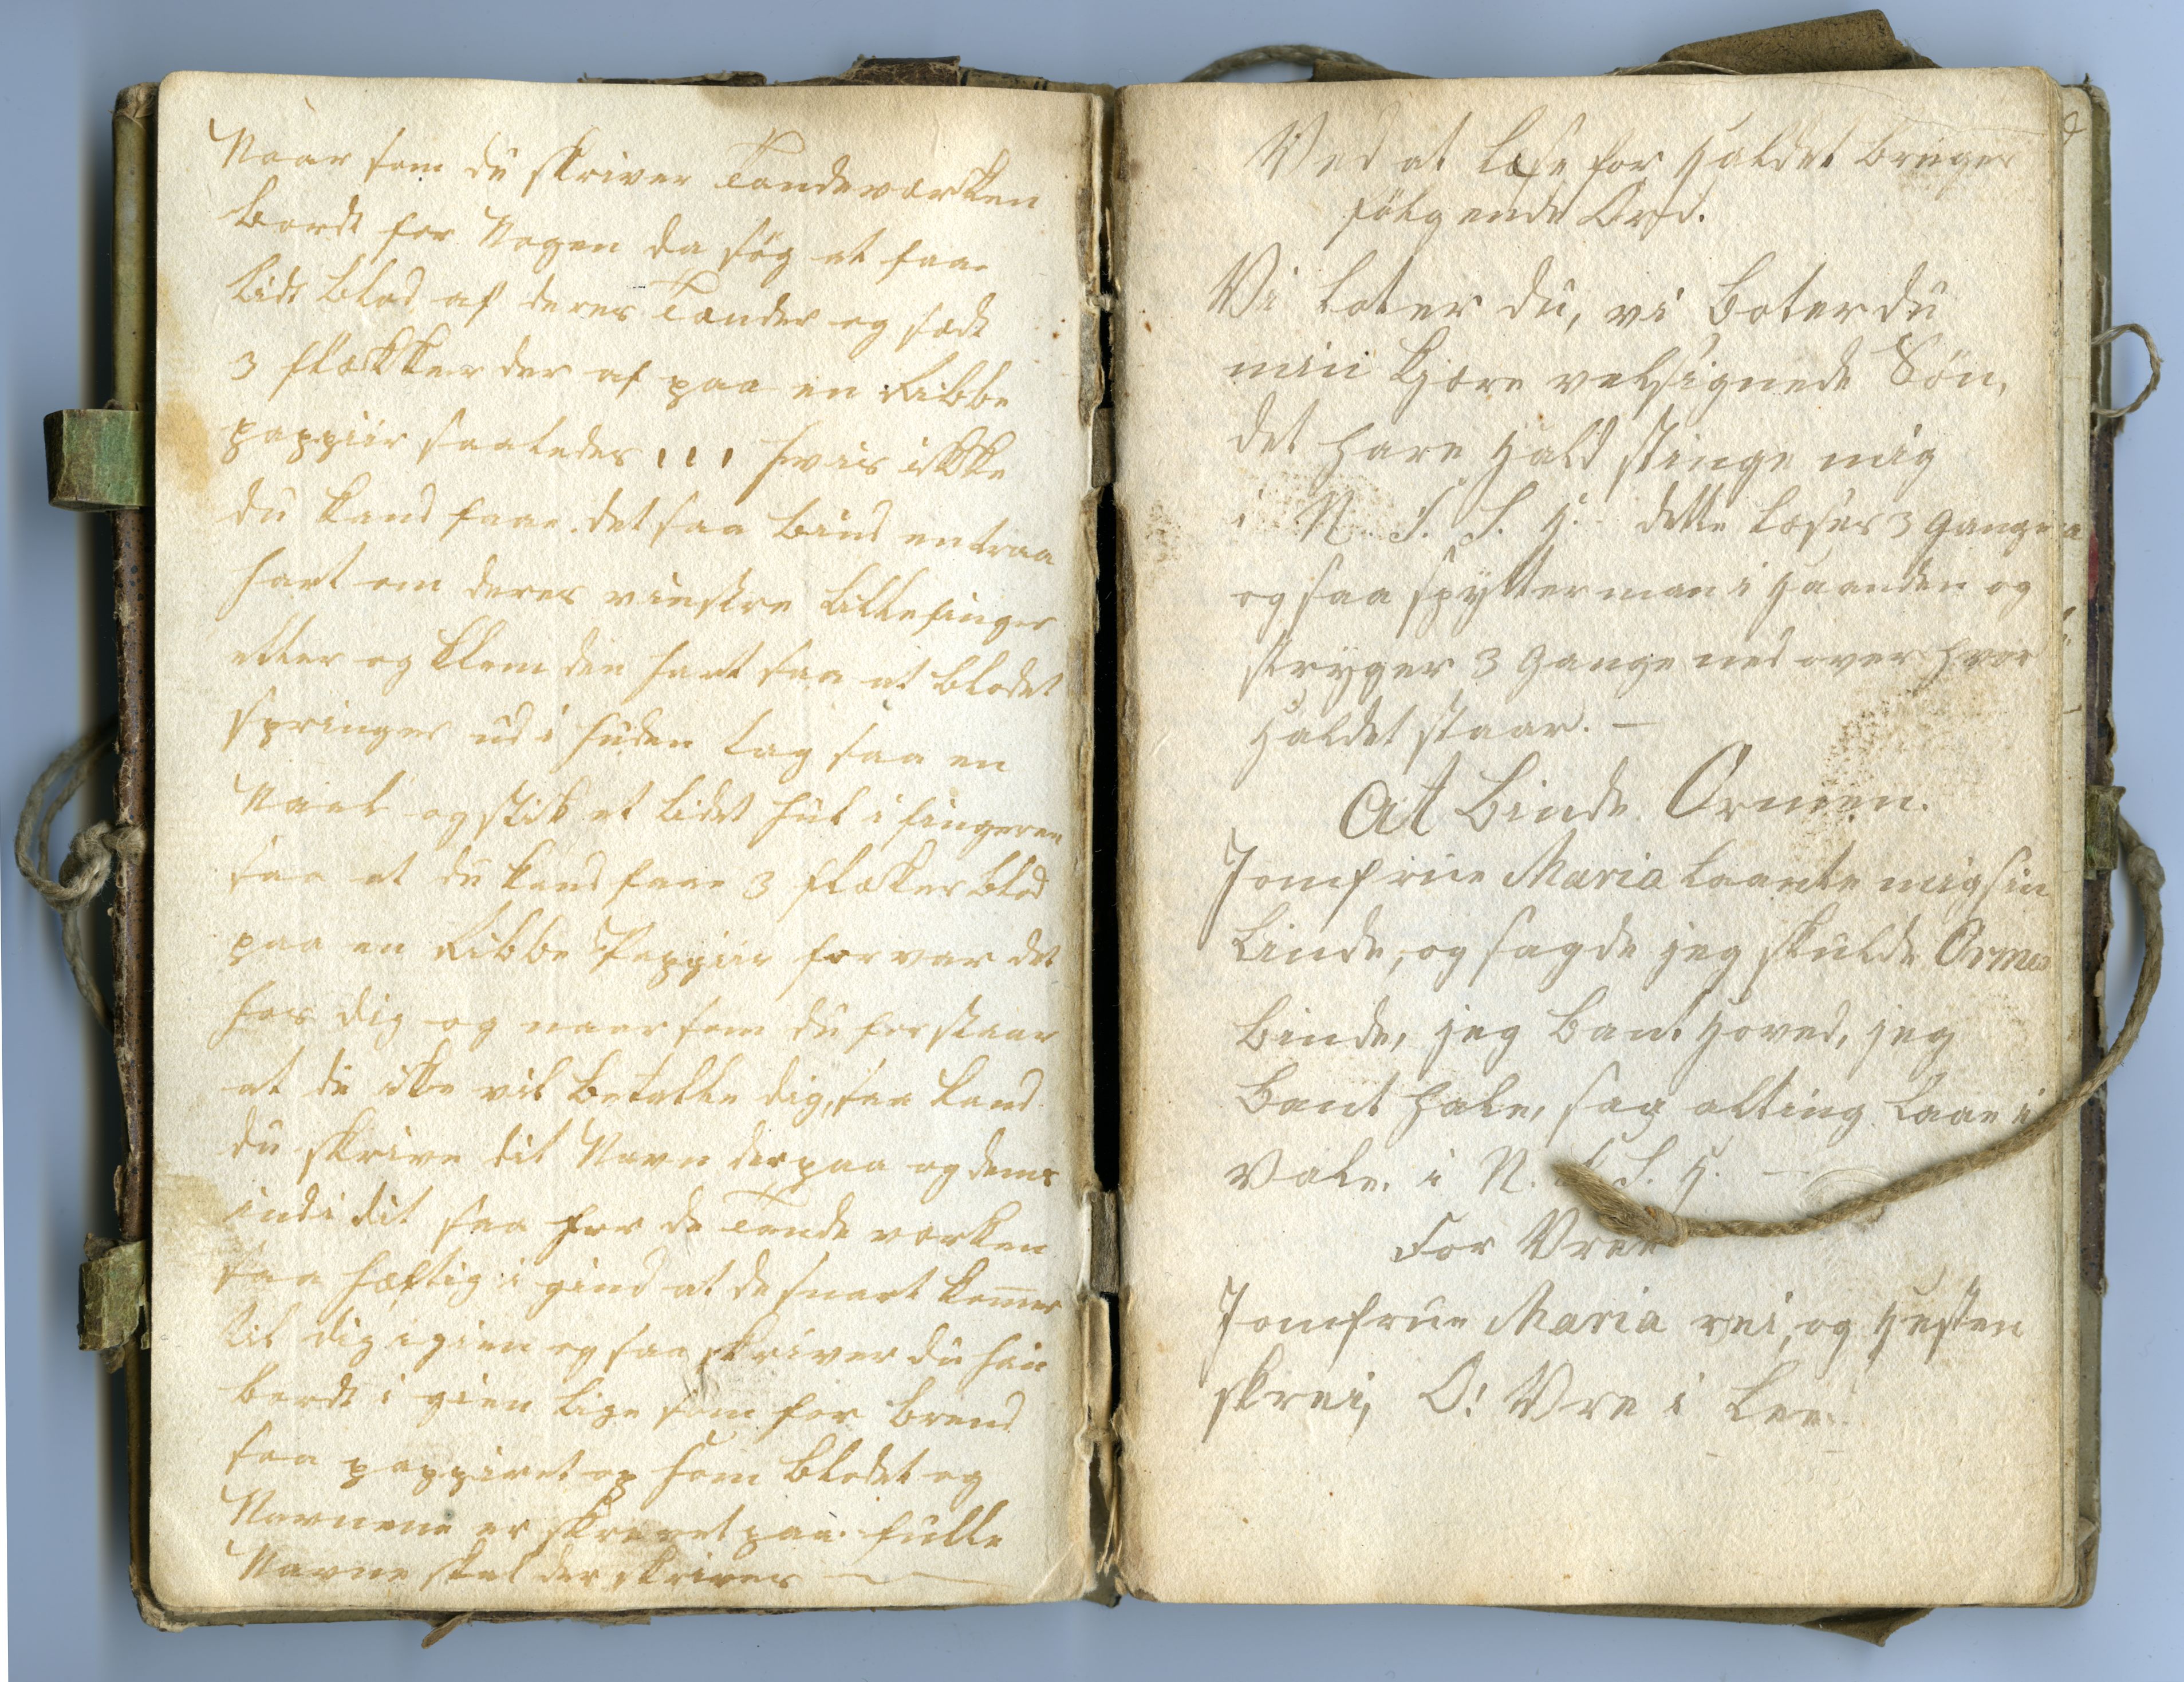 Naar som du skriver Tandeværken
bordt for Nogen da søg at faae
lidt blod af deres Tænder og sædt
3 flækker der af paa en Libbe
pappiir saaledes ,,, hvis ikke
du kand faae det saa bind en traa
hart om deres vinstre lillefinger
etter og klem den hart saa at blodet
springer ud i huden tag saa en
Naal og stik et lidet hul i fingeren
saa at du kand faae 3 flækker blod
paa en Libbe Pappiir forvar det
hos dig og naar som du forstaar
at de ikke vil betalle dig, saa kand
du skrive dit Navn der paa og deres
indi dit saa faar de Tande værken
saa hæftig i gind at de snart kom̅er
til dig igien og saa skriver du hin
bordt i gien lige som før brend
saa pappiret op som blodet og
Navnene er skrevet paa. fulle
Navne skal der skrives —
Ved at læse for Holdet bruges
følgende Ord.
Vi loter du, vi boter du
min kjære velsignede Søn,
det hare Hold stinge mig
i N. F. S. H. dette læses 3 Gange
og saa spytter man i Haanden og
stryger 3 Gange ned over hvor
Holdet staar. —
At binde Ormen.
Jomfrue Maria laante mig sin
Linde, og sagde jeg skulde Ormen
binde, jeg bant Hoved, jeg
bant Hale, sag alting laae i
Vale. i N. F. S. H. —
For Vree
Jomfrue Maria rei, og Hesten
skrei, O! Vre i Lee.